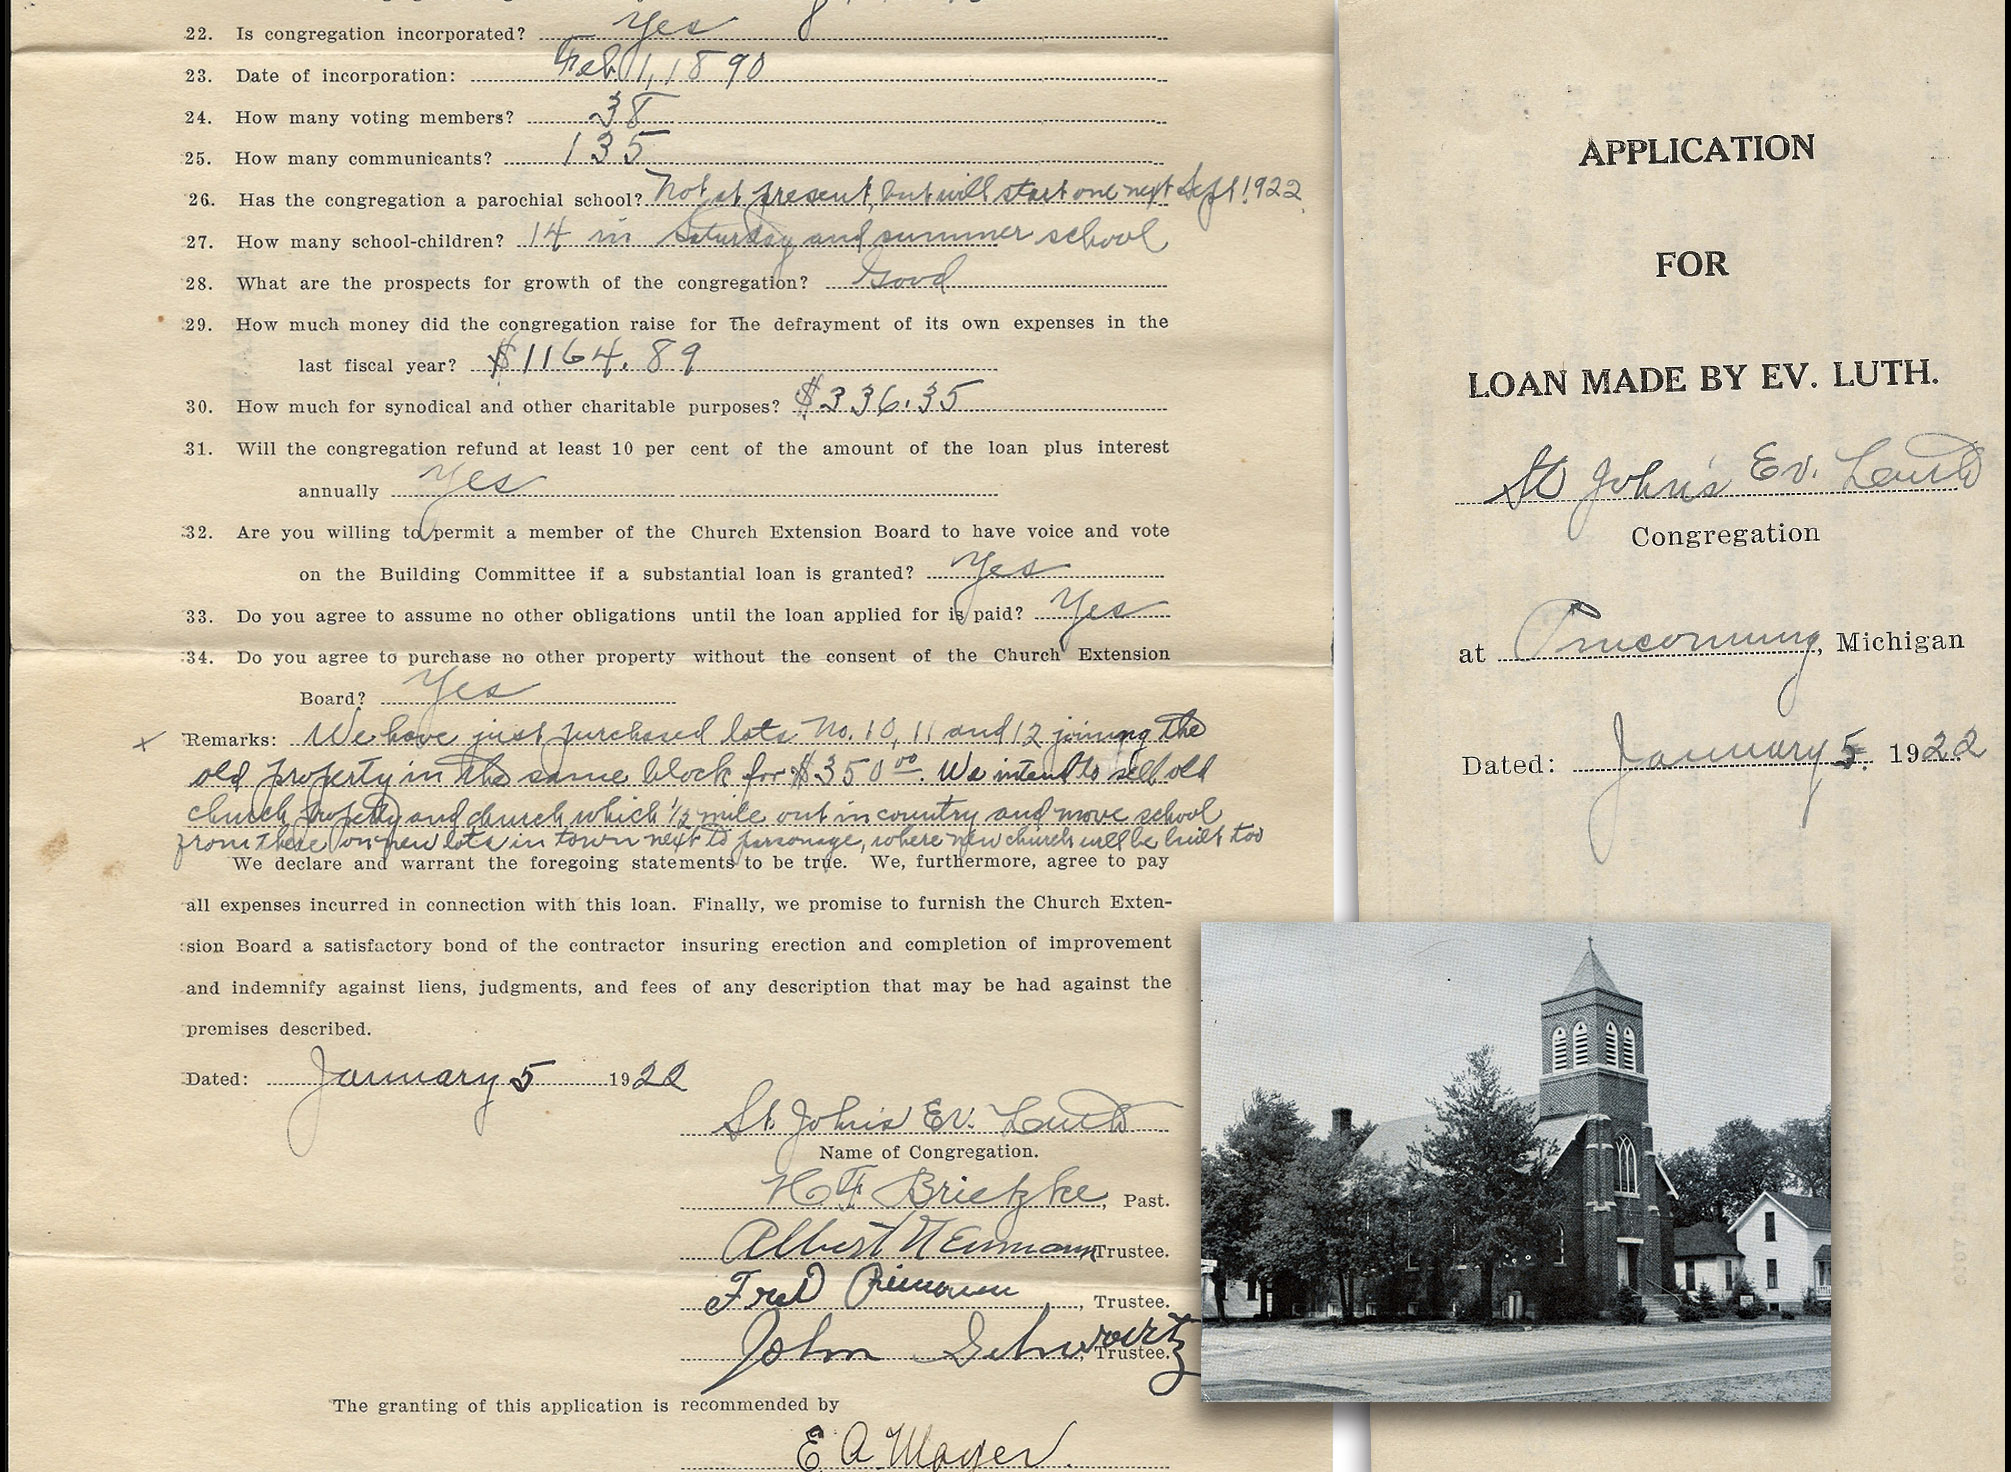 22. Is congregation incorporated? Yes
23. Date of incorporation: Feb 1, 1890
24. How many voting members? 38
25. How many communicants? 135
26. Has the congregation a parochial school? Not at present, but will start one next Sept 1922
27. How many school-children? 14 in Saturday and summer school
28. What are the prospects for growth of the congregation? Good
29. How much money did the congregation raise for the defrayment of its own expenses in the
last fiscal year? $1164.89
30. How much for synodical and other charitable purposes? $336.35
31. Will the congregation refund at least 10 per cent of the amount of the loan plus interest
annually Yes
32. Are you willing to permit a member of the Church Extension Board to have voice and vote
on the Building Committee if a substantial loan is granted? Yes
33. Do you agree to assume no other obligations until the loan applied for is paid? Yes
34. Do you agree to purchase no other property without the consent of the Church Extension
Board? Yes
x Remarks: We have just purchased lots No. 10, 11 and 12 joining the
old property in the same block for $350.00. We intend to sell old
church property and church which 1/2 mile out in country and move school
from there on new lots in town next to parsonage, where new church will be built too
We declare and warrant the foregoing statements to be true. We, furthermore, agree to pay
all expenses incurred in connection with this loan. Finally, we promise to furnish the Church Exten-
sion Board a satisfactory bond of the contractor insuring erection and completion of improvement
and indemnify against liens, judgments, and fees of any description that may be had against the
premises described.
Dated: January 5 1922
St. John's Ev. Luth
Name of Congregation.
H F Brietzke, Past.
Albert Neumann Trustee.
Fred, Trustee.
John Schwartz, Trustee.
The granting of this application is recommended by
E A Mayer.
APPLICATION
FOR
LOAN MADE BY EV. LUTH.
St John's Ev. Luth
Congregation
at Pinconning, Michigan
Dated: January 5. 1922